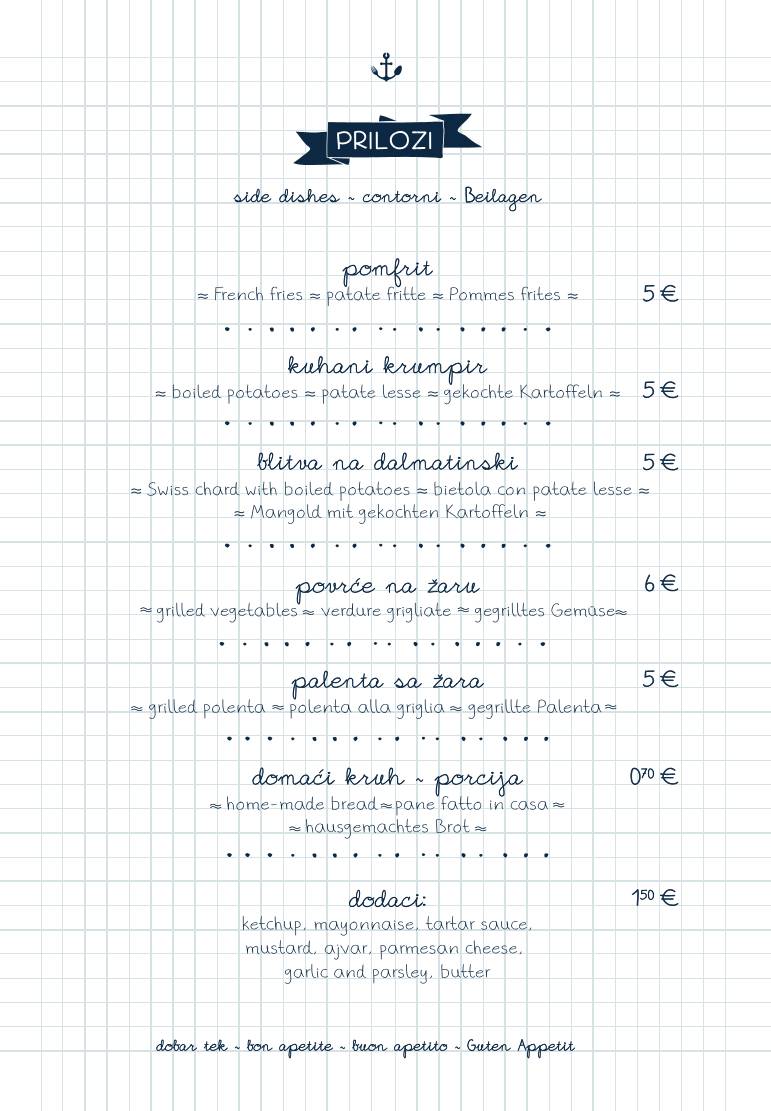 PRILOZI
side dishes ~ contorni ~ Beilagen
pomfrit
≈ French fries ≈ patate fritte ≈ Pommes frites ≈ 5 €
kuhani krumpir
≈ boiled potatoes ≈ patate lesse ≈ gekochte Kartoffeln ≈ 5 €
blitva na dalmatinski 5 €
≈ Swiss chard with boiled potatoes ≈ bietola con patate lesse ≈
≈ Mangold mit gekochten Kartoffeln ≈
povrće na žaru 6 €
≈ grilled vegetables ≈ verdure grigliate ≈ gegrilltes Gemüse≈
palenta sa žara 5 €
≈ grilled polenta ≈ polenta alla griglia ≈ gegrillte Palenta≈
domaći kruh ~ porcija 0⁷⁰ €
≈ home-made bread≈pane fatto in casa ≈
≈ hausgemachtes Brot ≈
dodaci: 1⁵⁰ €
ketchup, mayonnaise, tartar sauce,
mustard, ajvar, parmesan cheese,
garlic and parsley, butter
dobar tek ~ bon apetite ~ buon apetito ~ Guten Appetit